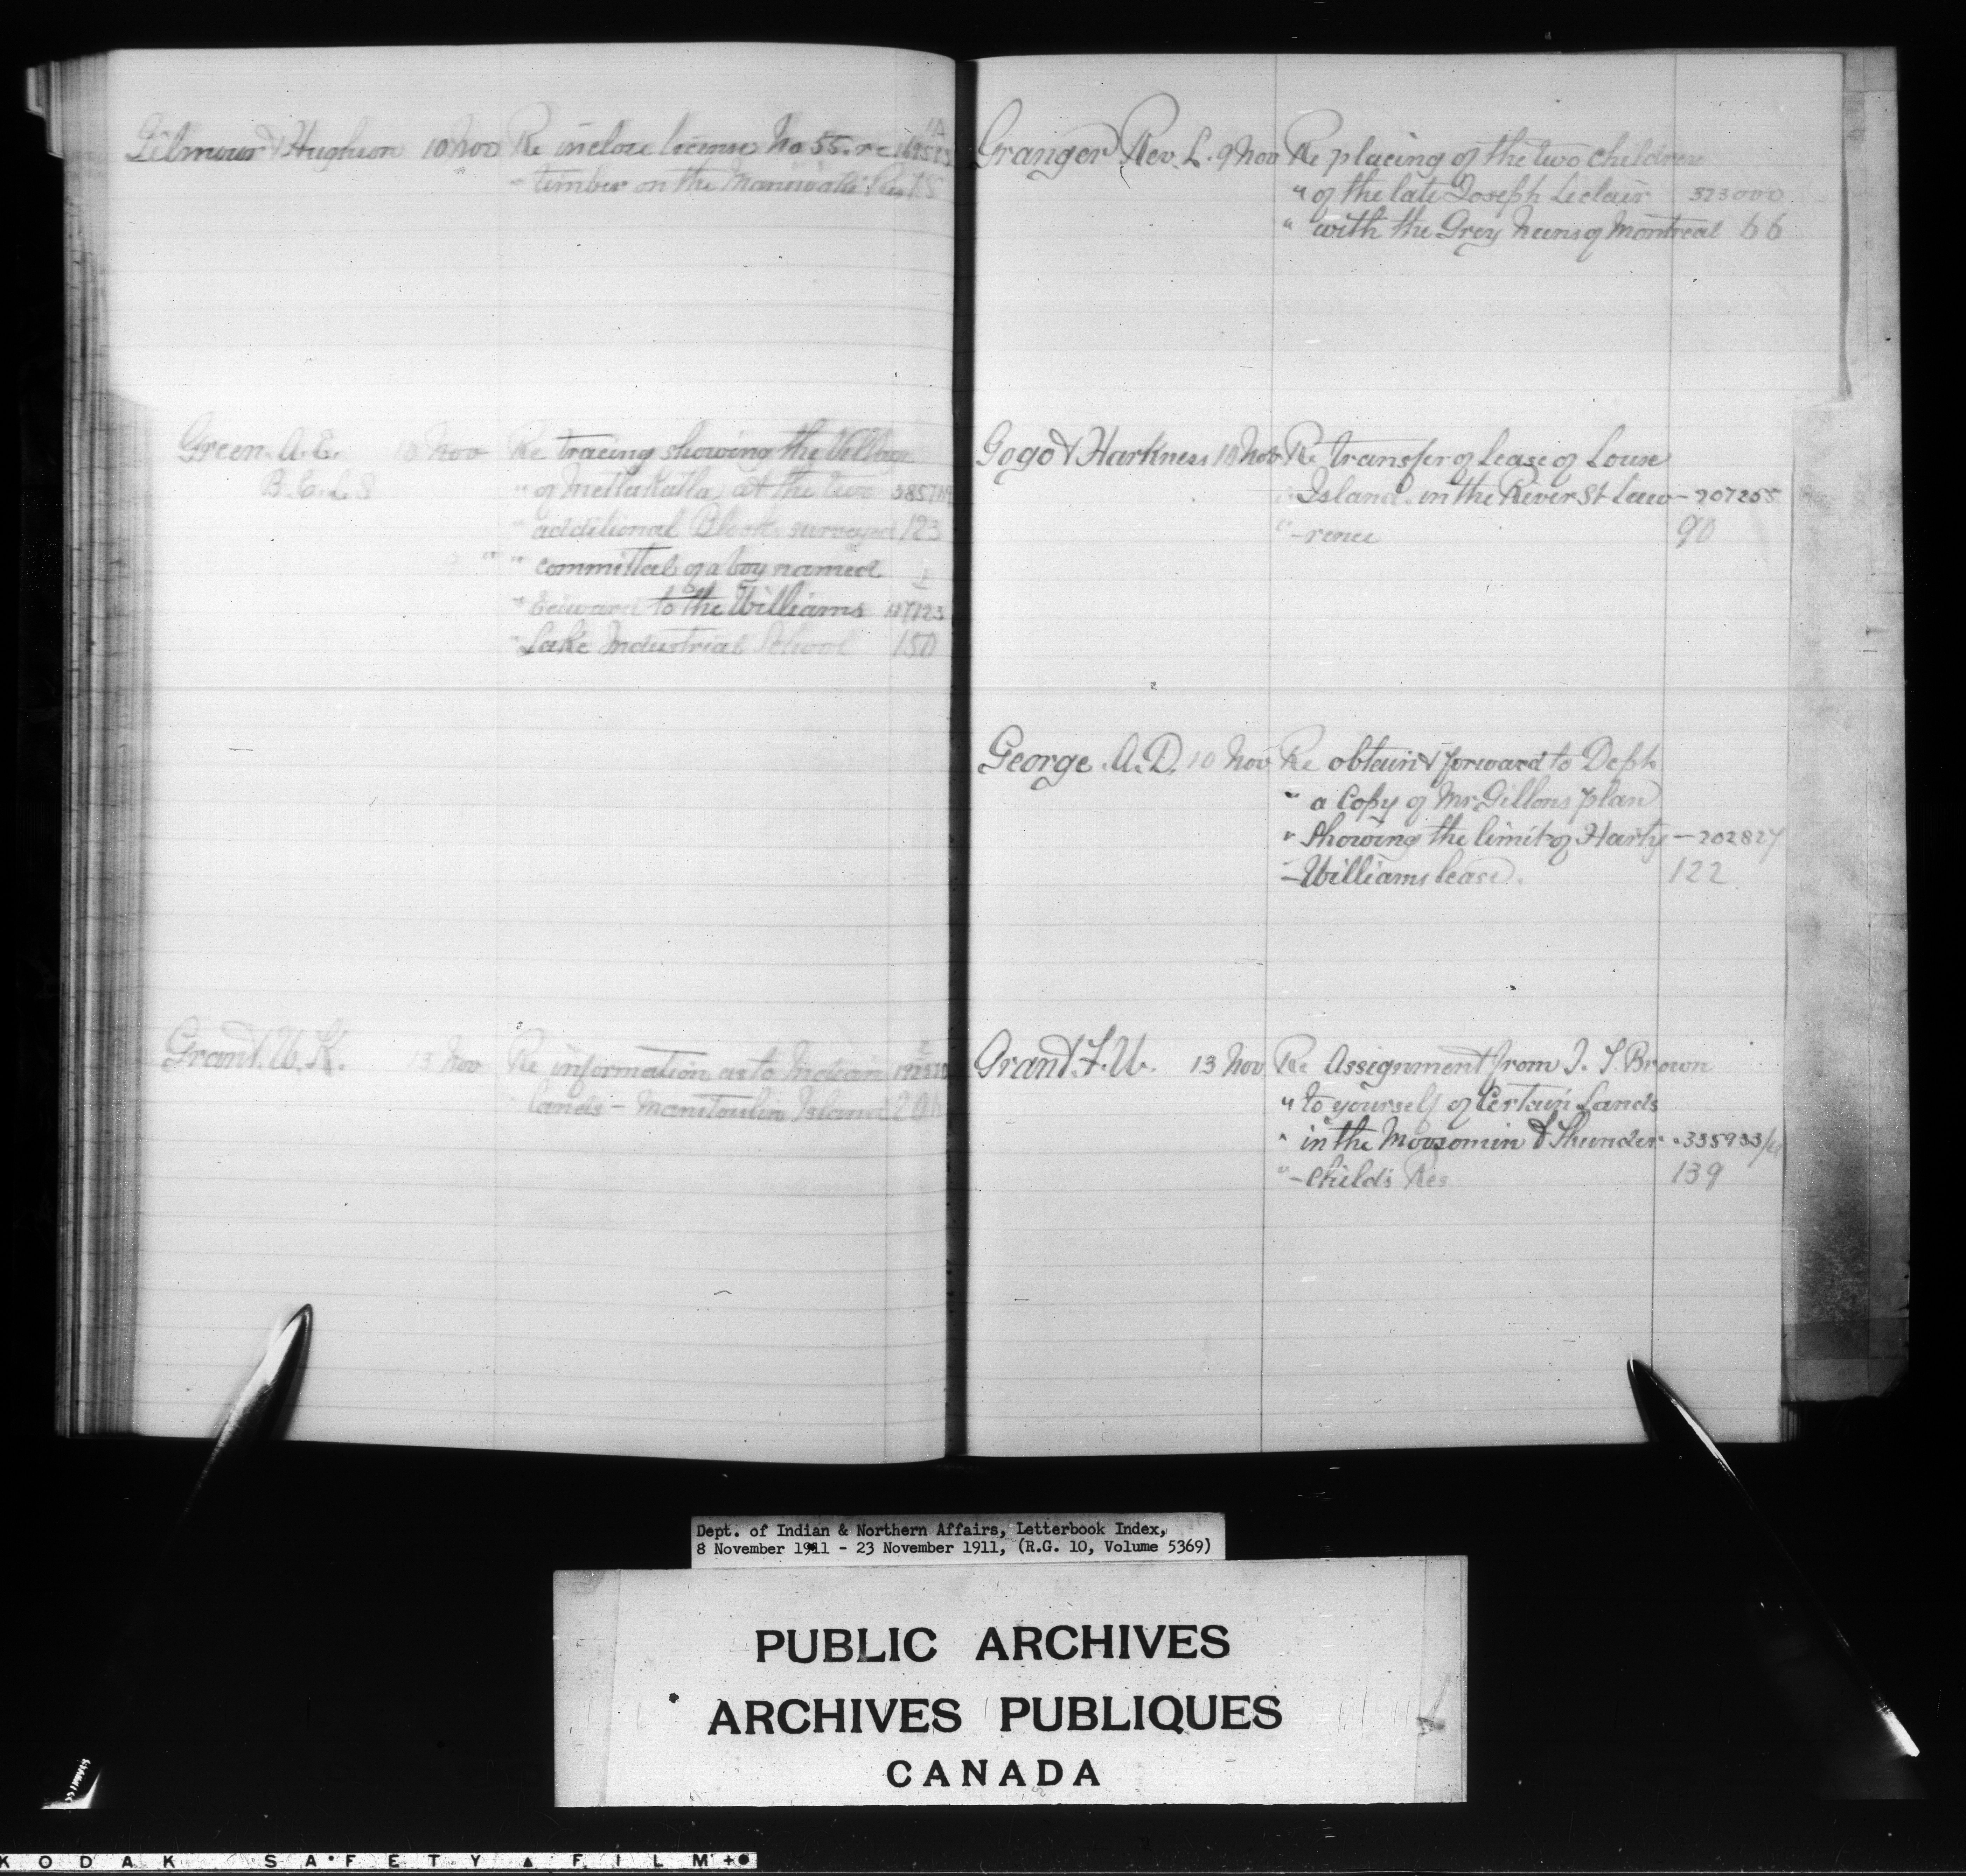 Gilmour & Hughson 10 Nov Re inclose license No 55. re
" timber on the Maniwaki Res 75
Green. A. E. 10 Nov Re tracing showing the Village
B. C. L. S " of Metlakatla, at the two
" additional Blocks surveyed 123
9 " " committal of a boy named
" Edward to the Williams
" Lake Industrial School 150
Grant. W. K. 13 Nov Re information as to Indian
lands - Manitoulin Island
Granger Rev. L. 9 Nov Re placing of the two children
" of the late Joseph Leclair 373000
" with the Grey Nuns of Montreal 66
Gogo & Harkness 10 Nov Re transfer of lease of Louse
Island in the River St Law - 207265
" -rence 90
George. A. D. 10 Nov Re obtain & forward to Dept
" a Copy of Mr Gillons plan
" showing the limit of Harty - 202827
- Williams lease. 122
Grant. F. W. 13 Nov Re Assignment from J. T. Brown
" to yourself of Certain Lands
" in the Moosomin & Thunder
" - Childs Res 139
Dept. of Indian & Northern Affairs, Letterbook Index,
8 November 1911 - 23 November 1911, (R.G. 10, Volume 5369)
PUBLIC ARCHIVES
ARCHIVES PUBLIQUES
CANADA
KODAK SAFETY FILM